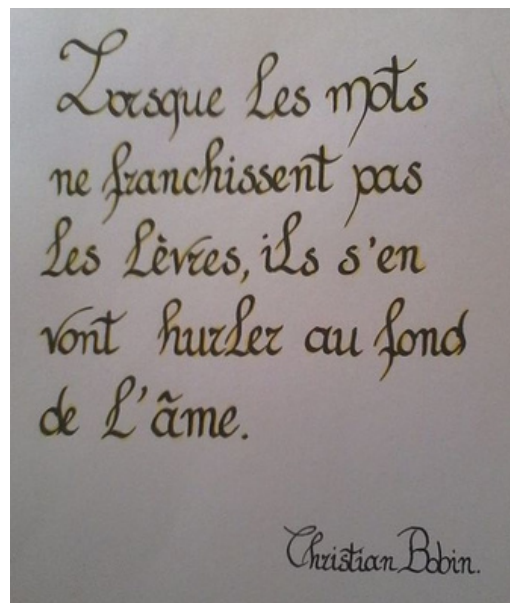 Lorsque les mots
ne franchissent pas
les lèvres, ils s'en
vont hurler au fond
de l'âme.
Christian Bobin.